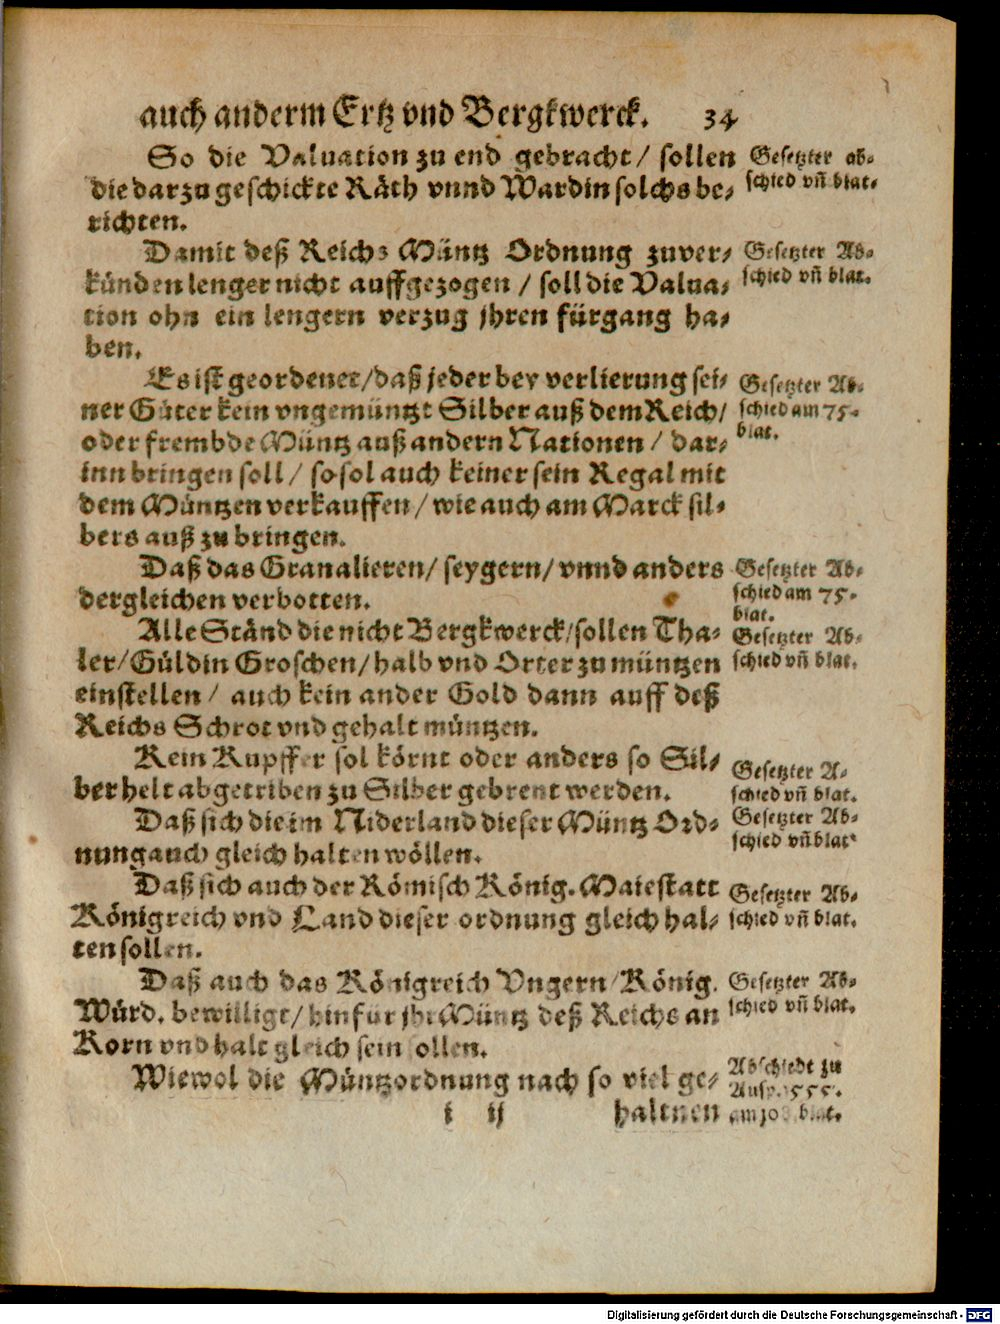 auch anderm Ertz vnd Bergkwerck. 34
So die Valuation zu end gebracht / sollen
die darzu geschickte Räth vnnd Wardin solchs be-
richten.
Gesetzter ab-
schied vñ blat.
Damit deß Reichs Müntz Ordnung zuver-
künden lenger nicht auffgezogen / soll die Valua-
tion ohn ein lengern verzug jhren fürgang ha-
ben.
Gesetzter Ab-
schied vñ blat.
Es ist geordenet / daß jeder bey verlierung sei-
ner Güter kein vngemüntzt Silber auß dem Reich /
oder frembde Müntz auß andern Nationen / dar-
inn bringen soll / so sol auch keiner sein Regal mit
dem Müntzen verkauffen / wie auch am Marck sil-
bers auß zu bringen.
Gesetzter Ab-
schied am 75.
blat.
Daß das Granalieren / seygern / vnnd anders
dergleichen verbotten.
Gesetzter Ab-
schied am 75.
blat.
Alle Ständ die nicht Bergkwerck / sollen Tha-
ler / Güldin Groschen / halb vnd Orter zu müntzen
einstellen / auch kein ander Gold dann auff deß
Reichs Schrot vnd gehalt müntzen.
Gesetzter Ab-
schied vñ blat.
Kein Kupffer sol körnt oder anders so Sil-
ber helt abgetriben zu Silber gebrent werden.
Gesetzter A-
schied vñ blat.
Daß sich die im Niderland dieser Müntz Ord-
nung auch gleich halten wöllen.
Gesetzter Ab-
schied vñ blat.
Daß sich auch der Römisch König. Maiestatt
Königreich vnd Land dieser ordnung gleich hal-
ten sollen.
Gesetzter Ab-
schied vñ blat.
Daß auch das Königreich Vngern / König.
Würd. bewilligt / hinfür jhr Müntz deß Reichs an
Korn vnd halt gleich sein sollen.
Gesetzter Ab-
schied vñ blat.
Wiewol die Müntzordnung nach so viel ge-
Abschiedt zu
Ausp. 1555.
am blat.
i ij haltnen
Digitalisierung gefördert durch die Deutsche Forschungsgemeinschaft - DFG